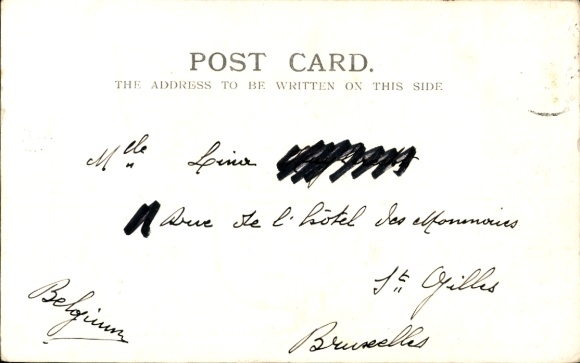 POST CARD.
THE ADDRESS TO BE WRITTEN ON THIS SIDE
Mlle Lina
Rue de l'hôtel des Monnaies
St. Gilles
Belgium
Bruxelles